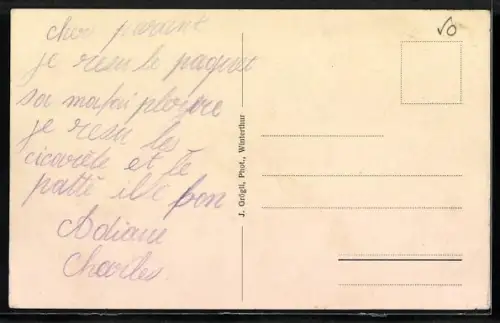 cher parant
je resu le paquet
sa mafai plesire
je resu les
cicarète et le
patté il é bon
Adiane
Charles.
J. Grögli, Phot., Winterthur
50